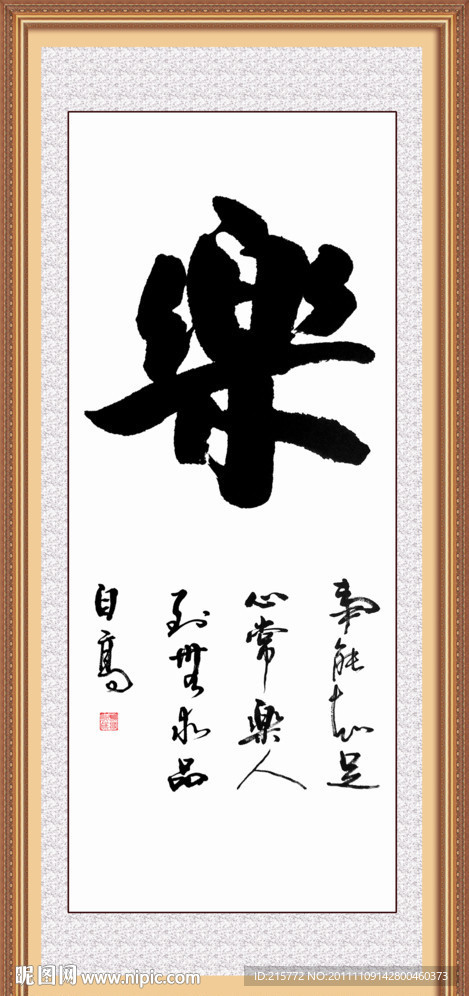 樂
事能知足
心常樂人
到無求品
自高
昵图网 www.nipic.com
ID:215772 NO:20111109142800460373